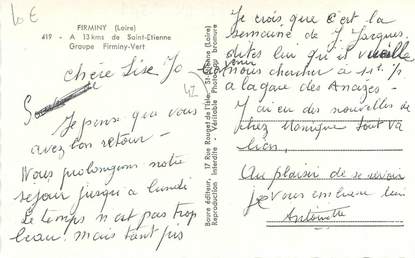 10 €
FIRMINY (Loire)
419 - A 13 kms de Saint-Etienne
Groupe Firminy-Vert
42
Chère Lise Jo
Je pense que vous
avez bon retour -
Nous prolongeons notre
séjour jusqu'à lundi
Le temps n'est pas trop
beau. mais tant pis
Boure éditeur, 17 Rue Rouget de l'Isle, St-Etienne (Loire)
Reproduction interdite - Véritable Photo au bromure
Je crois que c'est la
semaine de J. Jacques.
dites lui qu'il veuille
venir nous chercher à
à la gare des
J'ai eu des nouvelles de
chez Monique tout va
bien.
Au plaisir de se revoir
Je vous embrasse bien
Antoinette